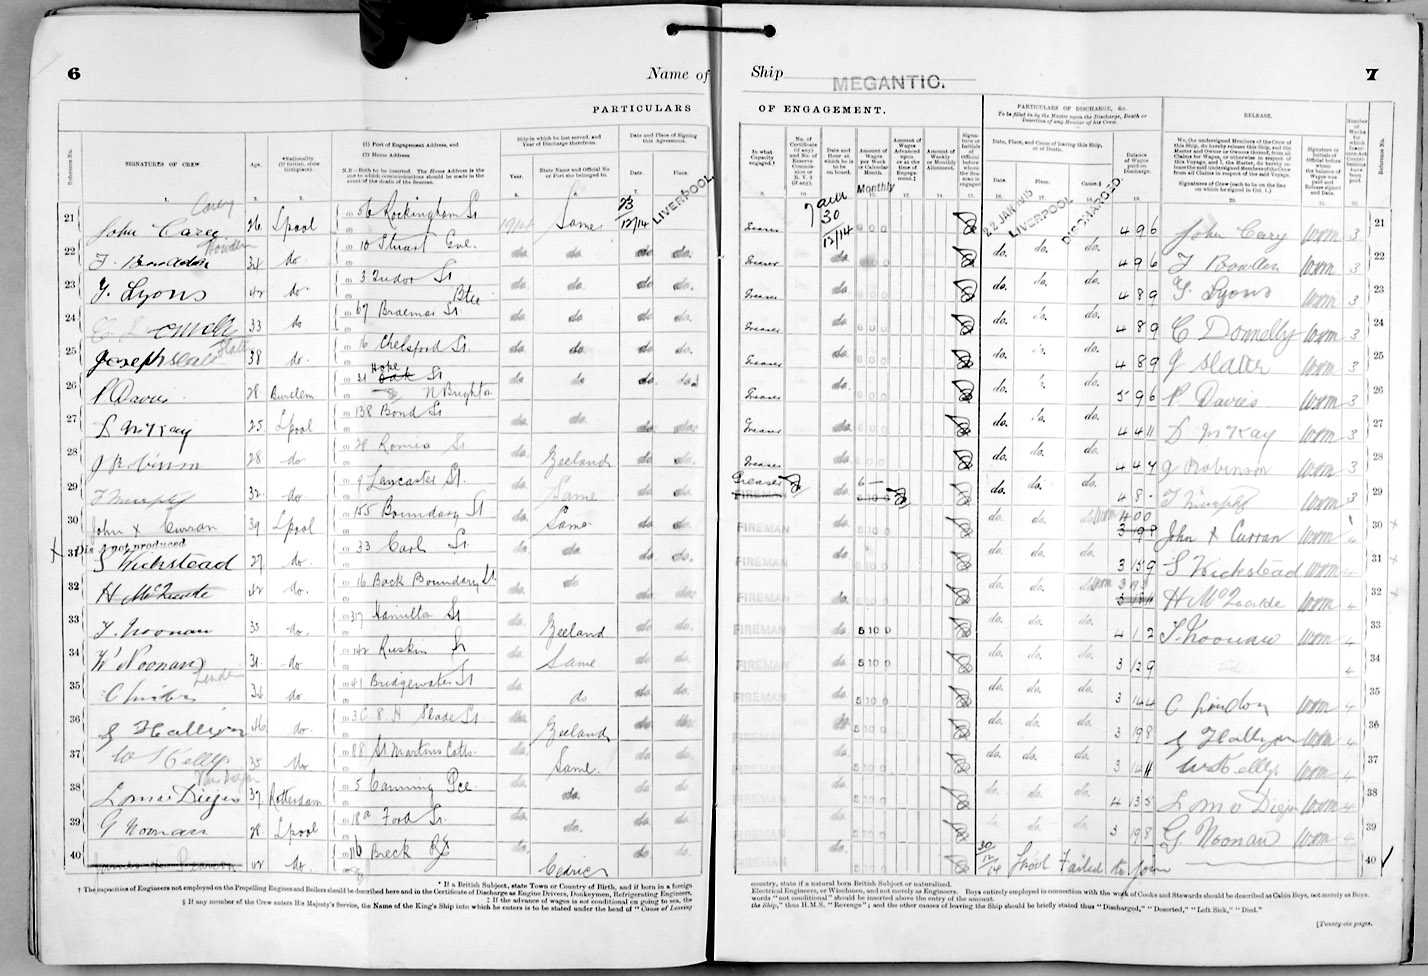 6
Name of Ship MEGANTIC. 7
PARTICULARS OF ENGAGEMENT.
PARTICULARS OF DISCHARGE, &c.
To be filled in by the Master upon the Discharge, Death or Desertion of any Member of his Crew.
RELEASE.
Reference No.
SIGNATURES OF CREW.
Age.
*Nationality (If British, state birthplace).
(1) Port of Engagement Address, and
(2) Home Address.
Ship in which he last served, and Year of Discharge therefrom.
Year.
State Name and Official No. or Port she belonged to.
Date and Place of Signing this Agreement.
Date. Place.
In what Capacity engaged.†
Date and Hour at which he is to be on board.
Amount of Wages per Week or Calendar Month.
Monthly
Date, Place, and Cause of leaving this Ship, or of Death.
Date. Place. Cause.§
Balance of Wages paid on Discharge.
Signatures of Crew (each to be on the line on which he signed in Col. 1.)
Reference No.
21 John Carey Carey 26 Lpool 56 Rockingham St 1914 Same 23/12/14 LIVERPOOL Greaser 7 am 30/12/14 6 0 0 22 JAN 1915 LIVERPOOL DISCHARGED. 4 9 6 John Cary 3 21
22 Bowden 34 do. 10 Stuart Gve. do. do. do. do. Greaser do. do. do. do. 4 9 6 J Bowden 3 22
23 Y. Lyons 42 do. 3 Tudor St do. do. do. do. Greaser do. do. do. do. 4 8 9 Y. Lyons 3 23
24 33 do 67 Braemar St Btle do. do. do. do. Greaser do. 6 0 0 do. do. do. 4 8 9 C Donnelly 3 24
25 Joseph Slater 38 do. 16 Chelsford St. do. do. do. do. Greaser do. 6 0 0 do. do. 4 8 9 J Slater 3 25
26 P Davies 28 Burslem 31 Hope St N Brighton do do do. do. Greaser do. 6 0 0 do. do. 5 9 6 P Davies 3 26
27 D McKay 25 Lpool 138 Bond St do. do. do. do. Greaser do. do. do. do. 4 4 11 D McKay 3 27
28 J Robinson 28 do 28 Romia St Zeeland do. do. Greaser do. do. do. do. 4 4 7 J Robinson 3 28
29 J Murphy 32 do. 9 Lancaster St. Same do. do. Greaser FIREMAN do. 6 – do. do. do. 4 8 - J Murphy 3 29
30 John x Curran 39 Lpool 155 Boundary St Same do. do. FIREMAN do. 5 10 0 do. do. do. 4 0 0 John x Curran 4 30
Dis A not produced
31 S Kickstead 27 do. 33 Earl St. do. do. do. do. FIREMAN do. 5 10 0 do. do. do. 3 15 9 S Kickstead 4 31
32 H McQuade 42 do. 16 Back Boundary St do. do do. do. FIREMAN do. do. do. do. H McQuade 4 32
33 T. Noonan 35 do. 37 Hamilton St Zeeland do. do. FIREMAN do. 5 10 0 do. do. do. 4 1 2 T. Noonan 4 33
34 W Noonan 31 do 142 Ruskin St Same do. do. FIREMAN do. 5 10 0 do. do. do. 3 12 9 4 34
35 C Linden Linden 34 do 41 Bridgewater St do. do do. do. FIREMAN do. 5 10 0 do. do. do. 3 14 4 C Lindon 4 35
36 J Halligan 36 do. 3 C. 8 H Slade St do. Zeeland do. do. FIREMAN do. 5 10 0 do. do. do. 3 19 8 J Halligan 4 36
37 W Kelly 35 do 88 St Martins Cotts. do. Same. do. do. FIREMAN do. 5 10 0 do. do. do. 3 14 11 W Kelly 4 37
38 Van Diejen 37 Rotterdam 5 Canning Pce do. do. do. do. FIREMAN do. 5 10 0 do. do. do. 4 13 5 4 38
39 G Noonan 28 Lpool 18a Ford St. do. do. do. do. FIREMAN do. 5 10 0 do. do. do. 3 19 8 G Noonan 4 39
40 42 do. 116 Breck Rd do. Cedric do. do. FIREMAN do. 5 10 0 30/12/14 Lpool Failed to join 40
* If a British Subject, state Town or Country of Birth, and if born in a foreign country, state if a natural born British Subject or naturalised.
† The capacities of Engineers not employed on the Propelling Engines and Boilers should be described here and in the Certificate of Discharge as Engine Drivers, Donkeymen, Refrigerating Engineers, Electrical Engineers, or Winchmen, and not merely as Engineers. Boys entirely employed in connection with the work of Cooks and Stewards should be described as Cabin Boys, not merely as Boys.
‡ If the advance of wages is not conditional on going to sea, the words "not conditional" should be inserted above the entry of the amount.
§ If any member of the Crew enters His Majesty's Service, the Name of the King's Ship into which he enters is to be stated under the head of "Cause of Leaving the Ship," thus H.M.S. "Revenge"; and the other causes of leaving the Ship should be briefly stated thus "Discharged," "Deserted," "Left Sick," "Died."
[Twenty-six pages.